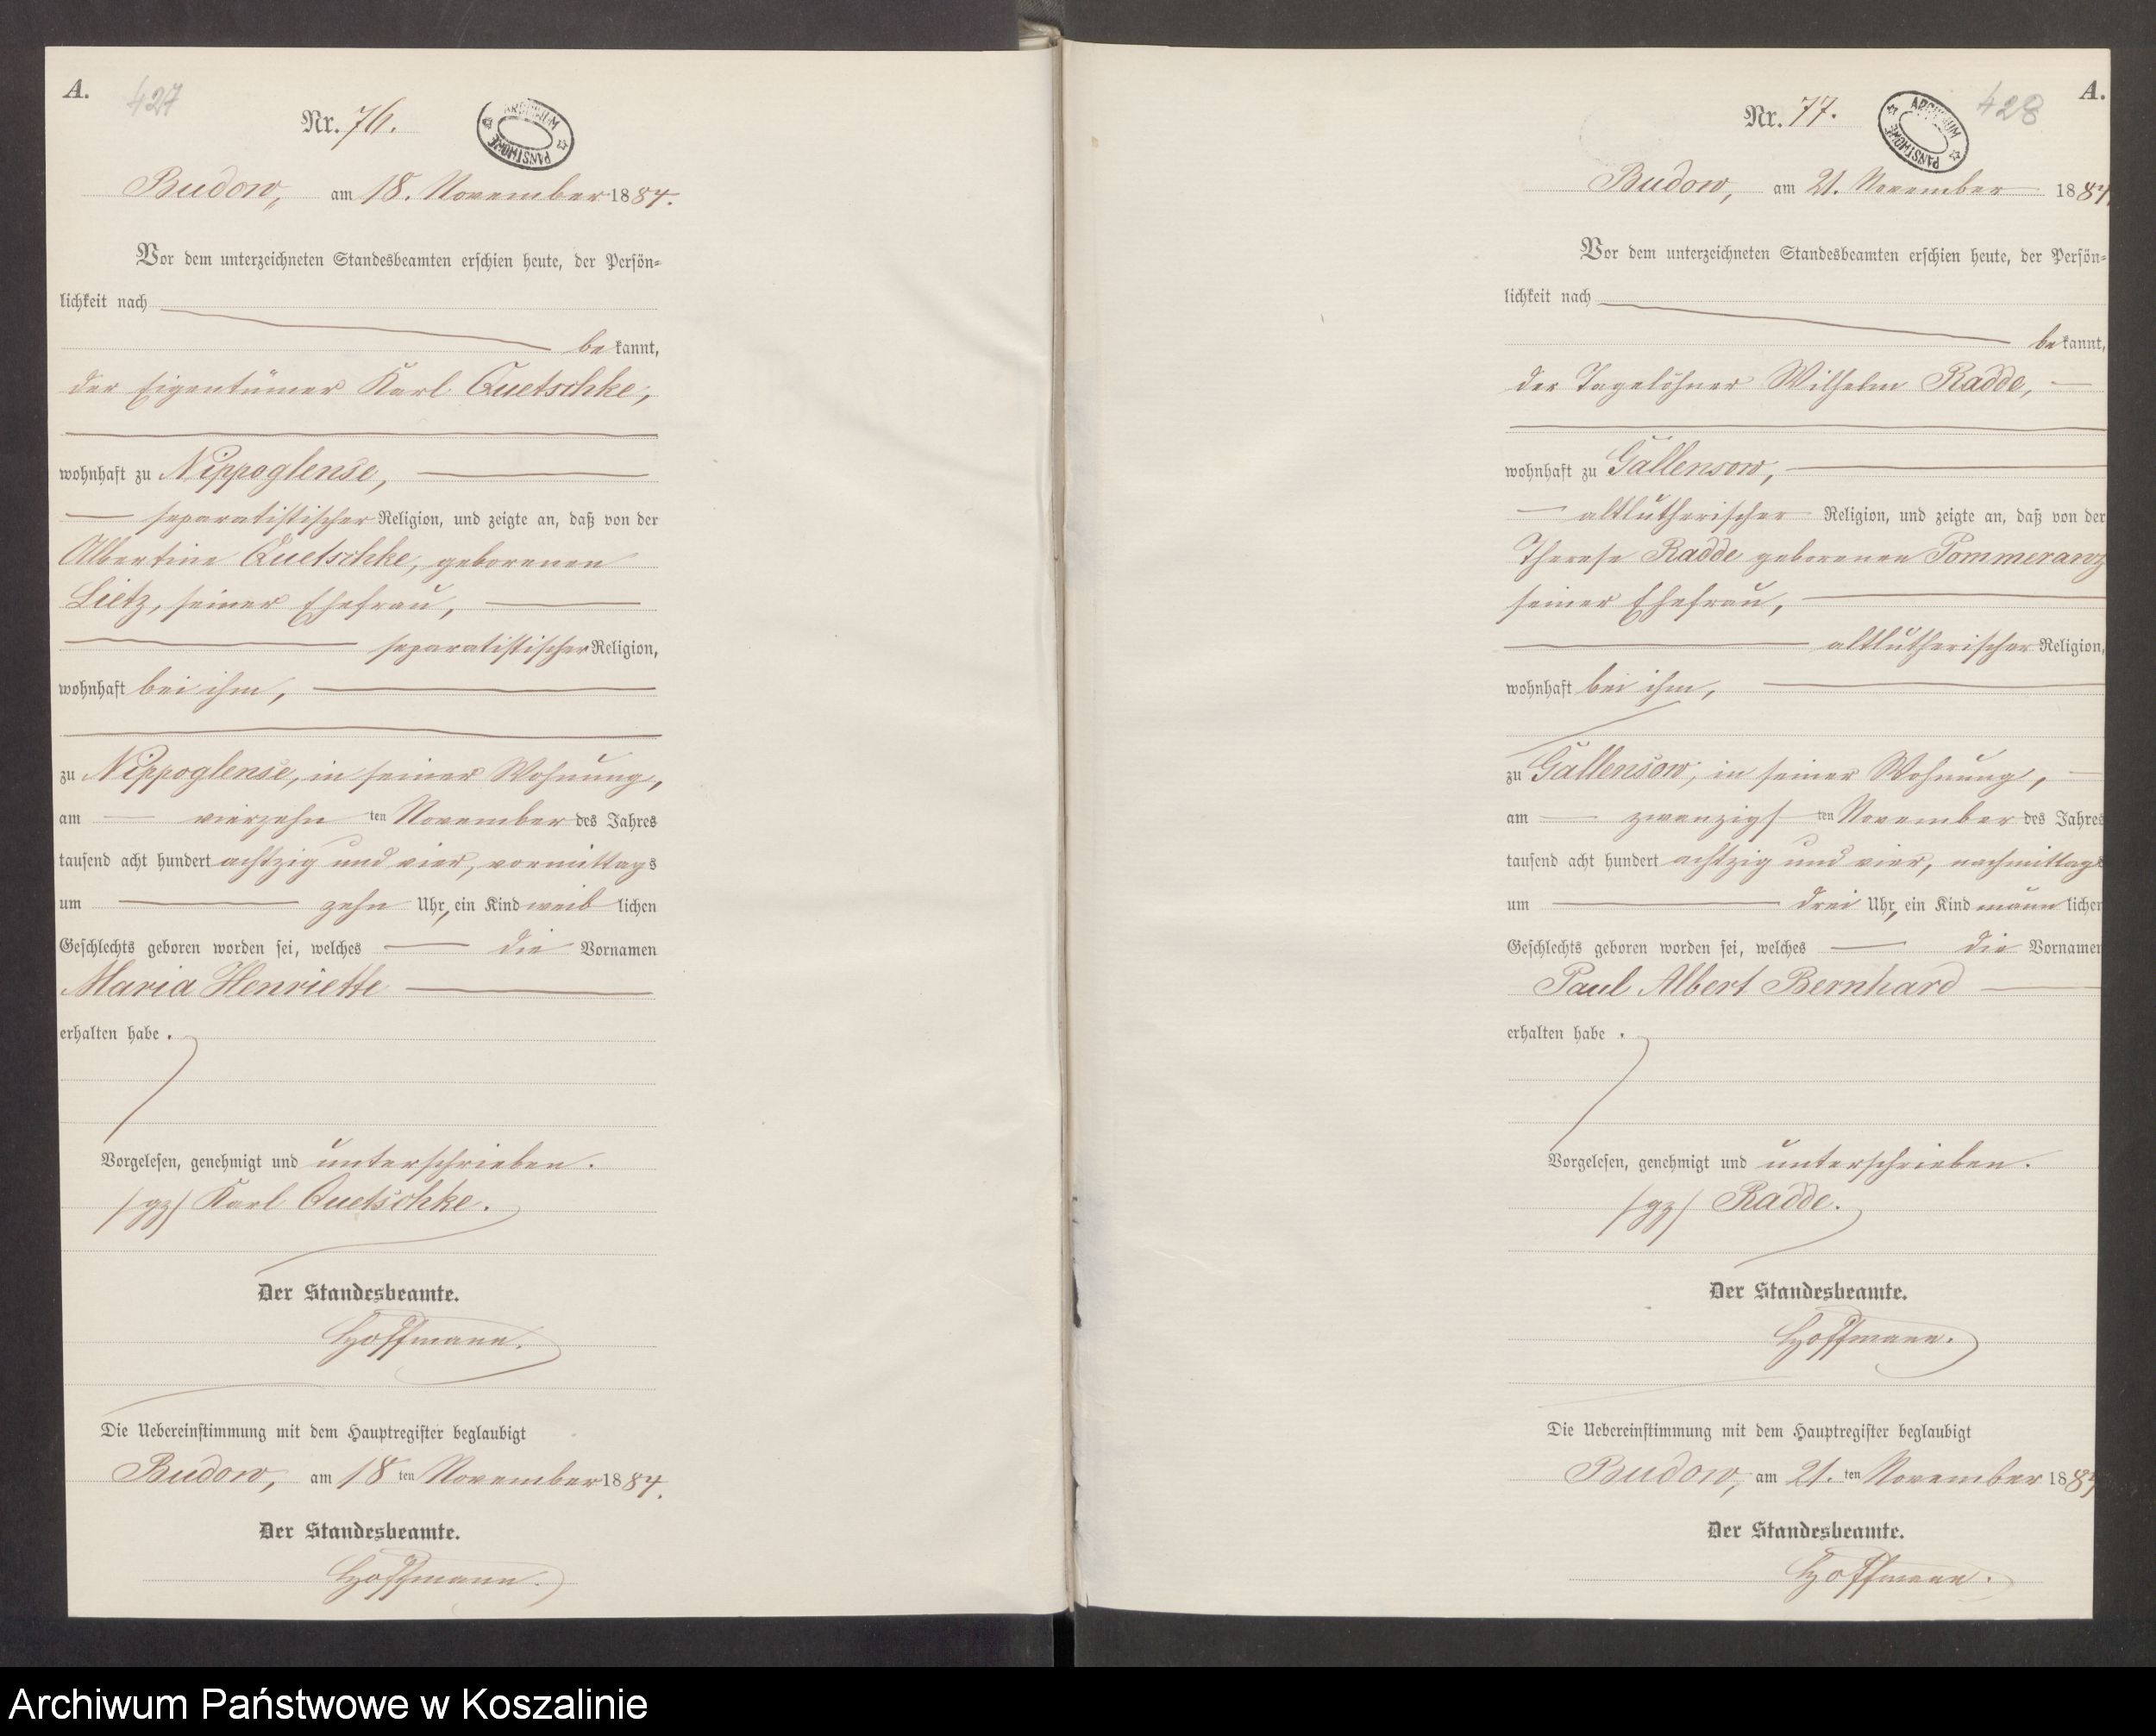 A.
427
Nr. 76.
ARCHIWUM PAŃSTWOWE
Budow, am 18. November 1884.
Vor dem unterzeichneten Standesbeamten erschien heute, der Persön-
lichkeit nach
be kannt,
der Eigentümer Karl Quetschke,
wohnhaft zu Nippoglense,
separatistischer Religion, und zeigte an, daß von der
Albertine Quetschke, geborenen
Lietz, seiner Ehefrau,
separatistischer Religion,
wohnhaft bei ihm,
zu Nippoglense, in seiner Wohnung,
am vierzehn ten November des Jahres
tausend acht hundert achtzig und vier, vormittags
um zehn Uhr, ein Kind weib lichen
Geschlechts geboren worden sei, welches die Vornamen
Maria Henriette
erhalten habe.
Vorgelesen, genehmigt und unterschrieben.
/gz/ Karl Quetschke.
Der Standesbeamte.
Hoffmann.
Die Uebereinstimmung mit dem Hauptregister beglaubigt
Budow, am 18 ten November 1884.
Der Standesbeamte.
Hoffmann.
A.
428
Nr. 77.
ARCHIWUM PAŃSTWOWE
Budow, am 21. November 1884.
Vor dem unterzeichneten Standesbeamten erschien heute, der Persön-
lichkeit nach
be kannt,
der Tagelöhner Wilhelm Radde,
wohnhaft zu Gallensow,
altlutherischer Religion, und zeigte an, daß von der
Therese Radde geborenen Pommeranz
seiner Ehefrau,
altlutherischer Religion,
wohnhaft bei ihm,
zu Gallensow, in seiner Wohnung,
am zwanzigs ten November des Jahres
tausend acht hundert achtzig und vier, nachmittags
um drei Uhr, ein Kind männ lichen
Geschlechts geboren worden sei, welches die Vornamen
Paul Albert Bernhard
erhalten habe.
Vorgelesen, genehmigt und unterschrieben.
/gz/ Radde.
Der Standesbeamte.
Hoffmann.
Die Uebereinstimmung mit dem Hauptregister beglaubigt
Budow, am 21. ten November 1884
Der Standesbeamte.
Hoffmann.
Archiwum Państwowe w Koszalinie